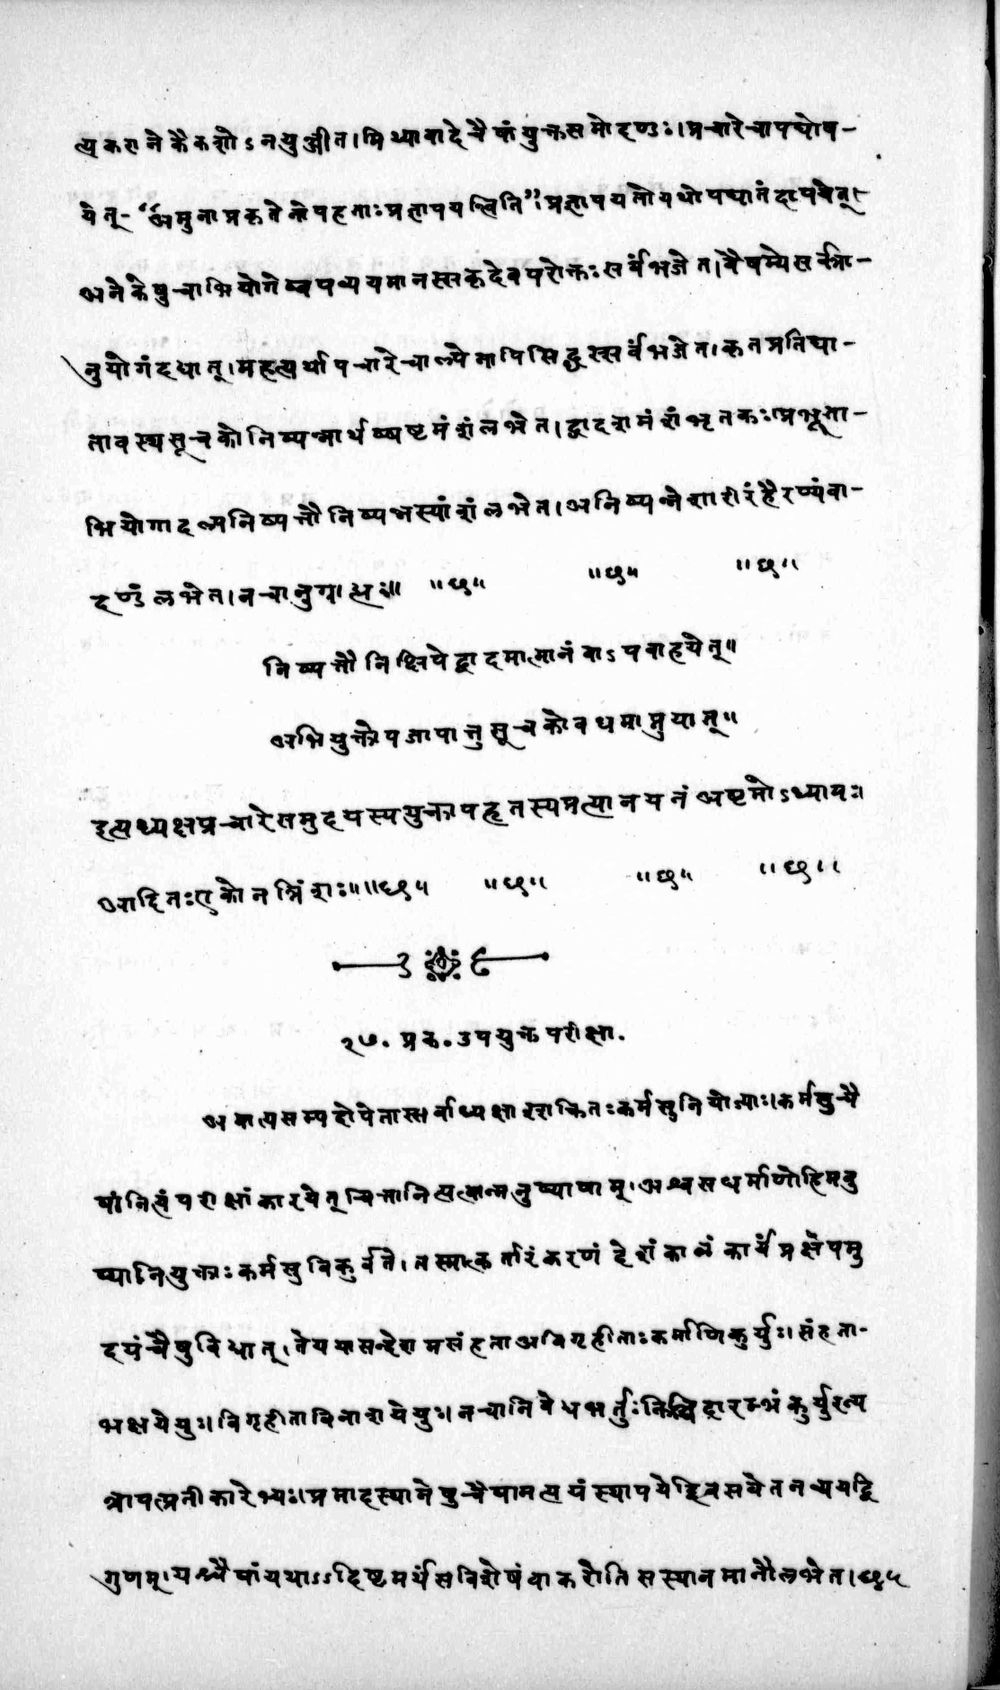 त्प्रकराने कैकशोऽनुयुञ्जीत। मिथ्यावादे चैषां युक्तसमो दण्डः। प्रचारे चापघोष-
येत्- “अमुना प्रकृतेनोपहताः प्रज्ञापयन्त्विति”। प्रज्ञापयतो यथोपघातं दापयेत्।-
अनेकेषु चाभियोगेष्वपव्ययमानस्सकृदेव परोक्तः सर्वं भजेत। वैषम्ये सर्वत्रा-
नुयोगं दद्यात्। महत्यर्थापचारे चाल्पेनापि सिद्धस्सर्वं भजेत। कृतप्रतिघा-
तावस्थसूचको निष्पन्नार्थष्षष्टमंशं लभेत। द्वादशमंशं भृतकः। प्रभूता-
भियोगादल्पनिष्पत्तौ निष्पन्नस्यांशं लभेत। अनिष्पन्ने शारीरं हैरण्यं वा-
दण्डं लभेत। न चानुग्राह्यः॥ ॥छ॥ ॥छ॥ ॥छ॥
निष्पत्तौ निक्षिपेद्वादमात्मानं वाऽपवाहयेत्॥
अभियुक्तोपजापात्तु सूचको वधमाप्नुयात्॥
इत्यध्यक्षप्रचारे समुदयस्य युक्तापहृतस्य प्रत्यानयनं अष्टमोऽध्यायः।
आदितः एकोनत्रिंशः॥ ॥छ॥ ॥छ॥ ॥छ॥ ॥छ॥
२७. प्रक. उपयुक्तपरीक्षा.
अमात्यसम्पदोपेतास्सर्वाध्यक्षाश्शक्तितः कर्मसु नियोज्याः। कर्मसु चै
षां नित्यं परीक्षां कारयेत् चित्तानित्यत्वान्मनुष्याणाम्। अश्वसधर्माणो हि मनु
ष्या नियुक्ताः कर्मसु विकुर्वते। तस्मात्कर्तारं करणं देशं कालं कार्यं प्रक्षेपमु
दयं चैषु विद्यात्। ते यथासन्देशमसंहता अविगृहीताः कर्माणि कुर्युः। संहता-
भक्षयेयुः। विगृहीता विनाशयेयुः। न चानिवेद्य भर्तुः किञ्चिदारम्भं कुर्युरन्य
त्रापत्प्रतीकारेभ्यः। प्रमादस्थानेषु चैषामत्ययं स्थापयेद्दिवसवेतनव्ययद्वि
गुणम्। यश्चैषां यथाऽऽदिष्टमर्थं सविशेषं वा करोति स स्थानमानौ लभेत। छ॥